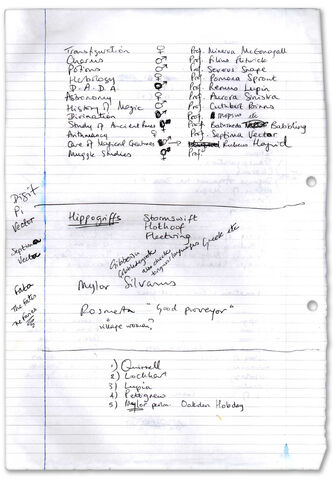 Transfiguration ♀ Prof. Minerva McGonagall
Charms ♂ Prof. Filius Flitwick
Potions ♂ Prof. Severus Snape
Herbology ♀ Prof. Pomona Sprout
D.A.D.A ♂ Prof. Remus Lupin
Astronomy ♀ Prof. Aurora Sinistra
History of Magic ♂ Prof. Cuthbert Binns
Divination Prof. Mopsus
Study of Ancient Runes Prof. Bathsheda Babbling
Arithmancy ♀ Prof. Septima Vector
Care of Magical Creatures Rubeus Hagrid
Muggle Studies Prof.
Digit
Pi
Vector
Septima
Vector
Fata
The Fates
The Furies
Hippogriffs
Stormswift
Hothoof
Fleetwing
Mylor Silvanus
Rosmerta "Good purveyor"
"village woman"
1) Quirrell
2) Lockhart
3) Lupin
4) Pettigrew
5) Mylor Oakden Hobday